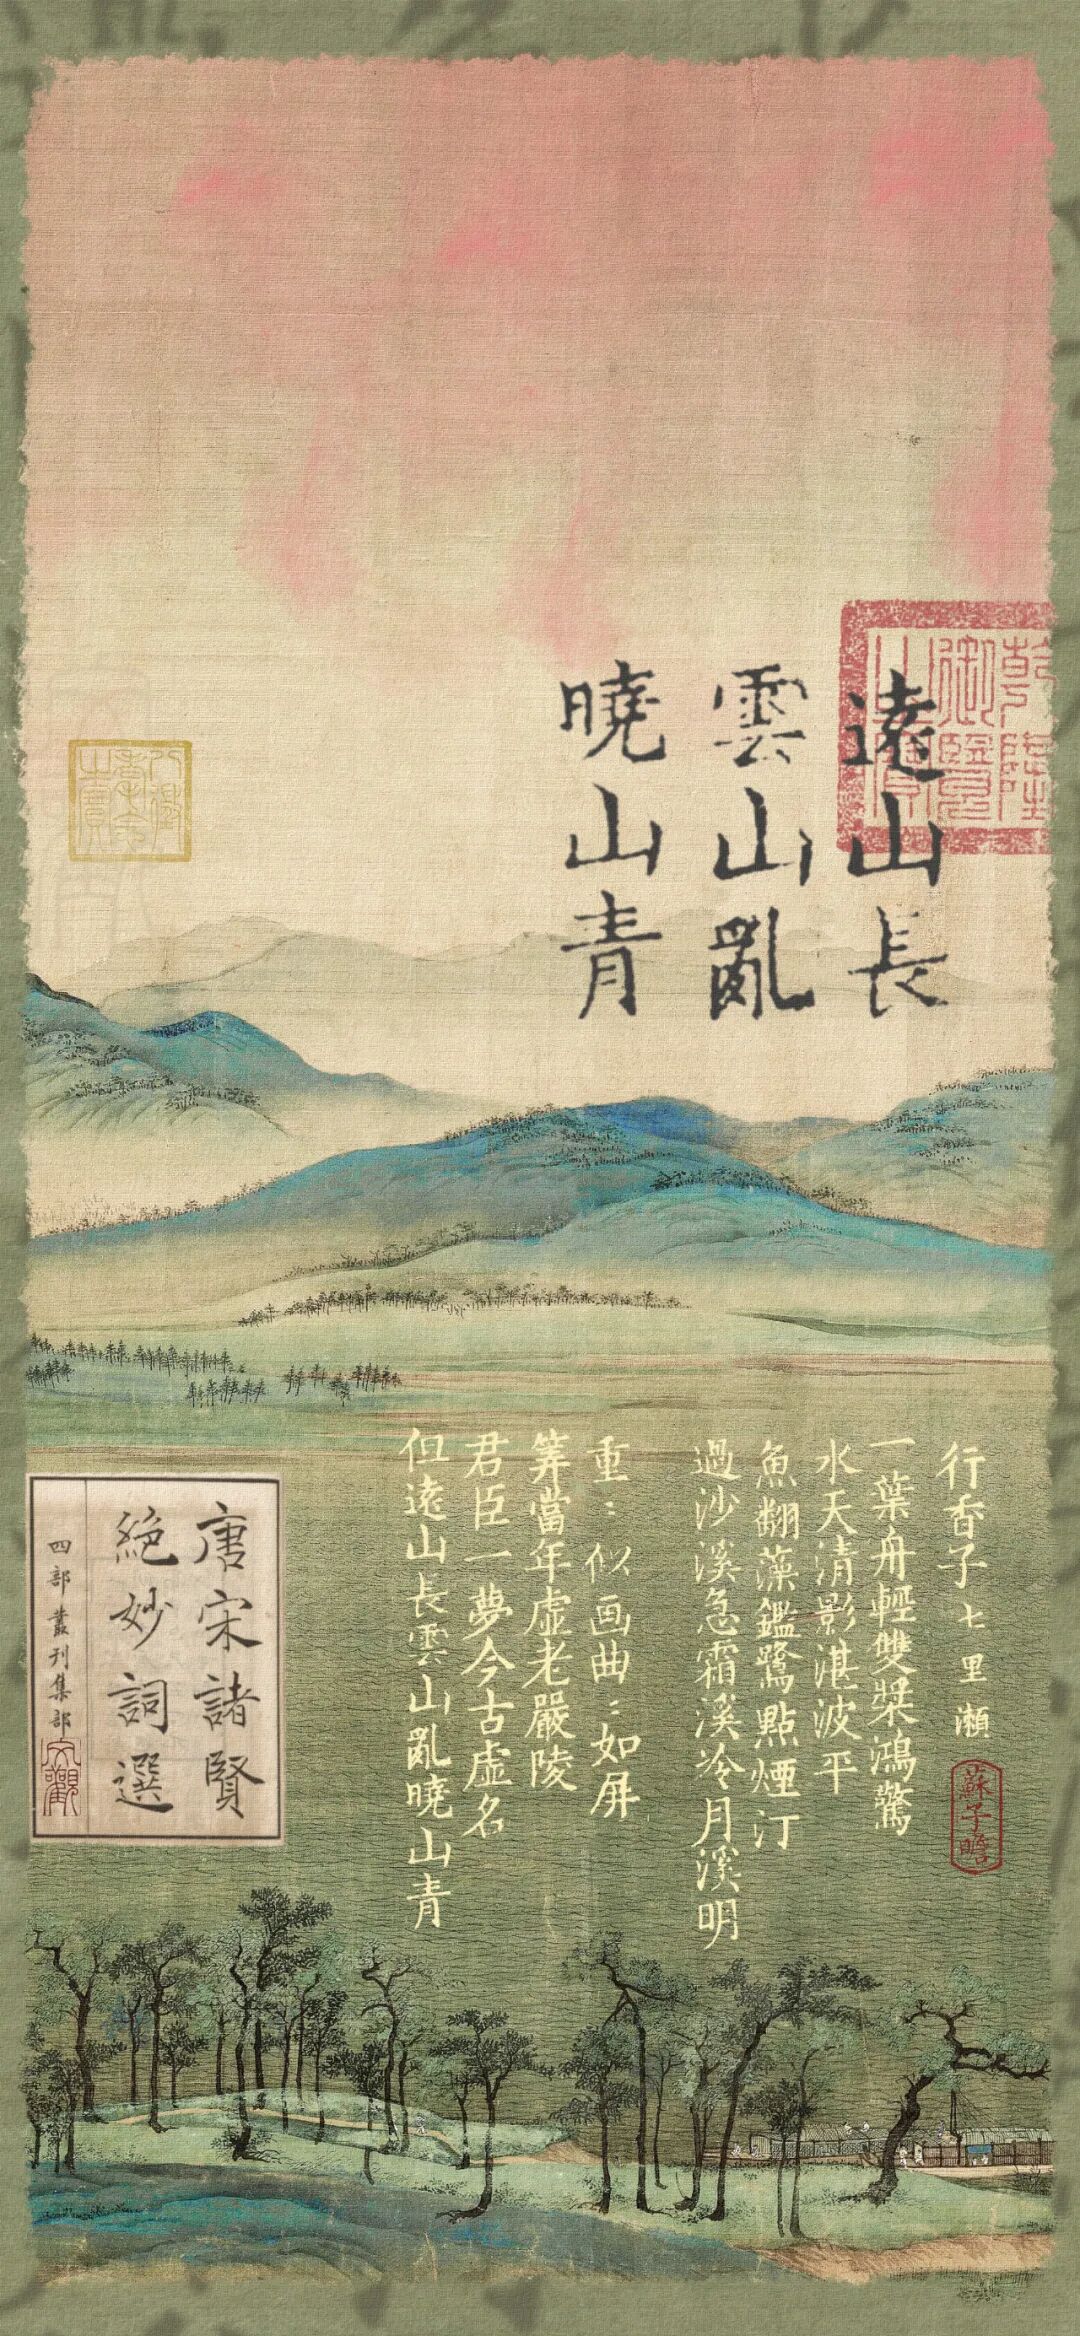 乾隆
御覽
之寶
遠山長
雲山亂
曉山青
八徵
耄念
之寶
行香子 七里瀨
蘇子瞻
一葉舟輕雙槳鴻驚
水天清影湛波平
魚翻藻鑑鷺點煙汀
過沙溪急霜溪冷月溪明
重:似画曲:如屏
筭當年虛老嚴陵
君臣一夢今古虛名
但遠山長雲山亂曉山青
唐宋諸賢
絕妙詞選
四部叢刊集部
大觀